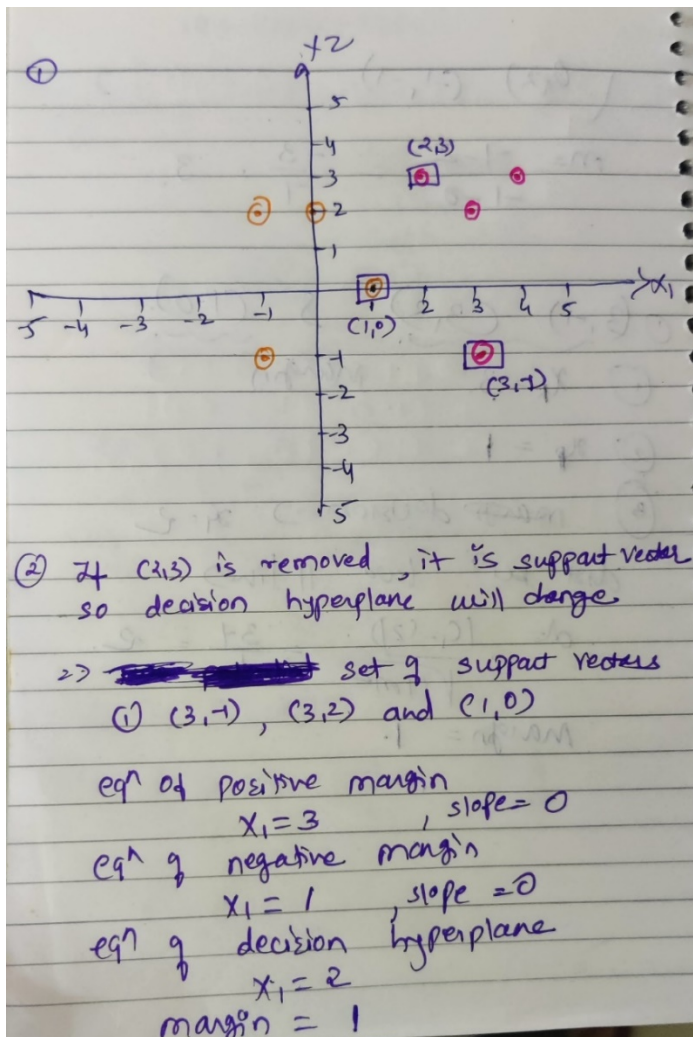 ①
x2
5
4
(2,3)
3
2
1
-5 -4 -3 -2 -1 1 2 3 4 5 x1
(1,0)
-1
(3,-1)
-2
-3
-4
5
② If (2,3) is removed, it is support vector
so decision hyperplane will change
2> set of support vectors
① (3,-1), (3,2) and (1,0)
eqn of positive margin
x1 = 3 , slope = 0
eqn of negative margin
x1 = 1 , slope = 0
eqn of decision hyperplane
x1 = 2
margin = 1